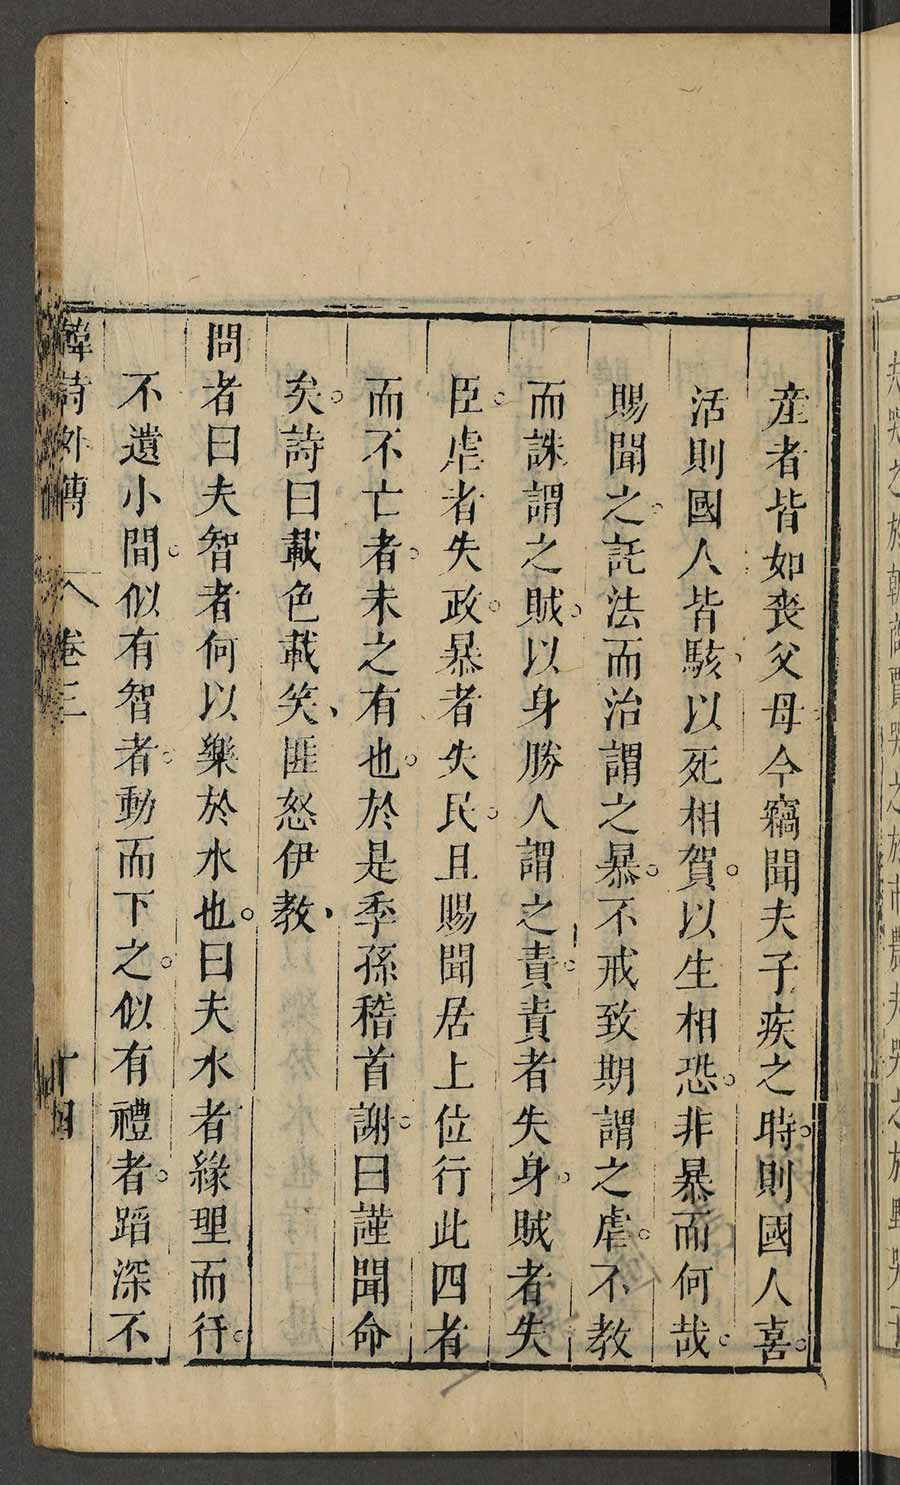 產者皆如喪父母今竊聞夫子疾之時。則國人喜。
活則國人皆駭、以死相賀。以生相恐。非暴而何哉。
賜聞之。託法而治謂之暴。不戒致期謂之虐。不教
而誅謂之賊。以身勝人謂之責。責者失身。賊者失
臣。虐者失政。暴者失民。且賜聞居上位行此四者
而不亡者。未之有也。於是季孫稽首謝。曰謹聞命
矣。詩曰載色載笑、匪怒伊教、
問者曰夫智者何以樂於水也。曰夫水者緣理而行。
不遺小間。似有智者。動而下之。似有禮者。蹈深不
韓詩外傳 卷三 十四